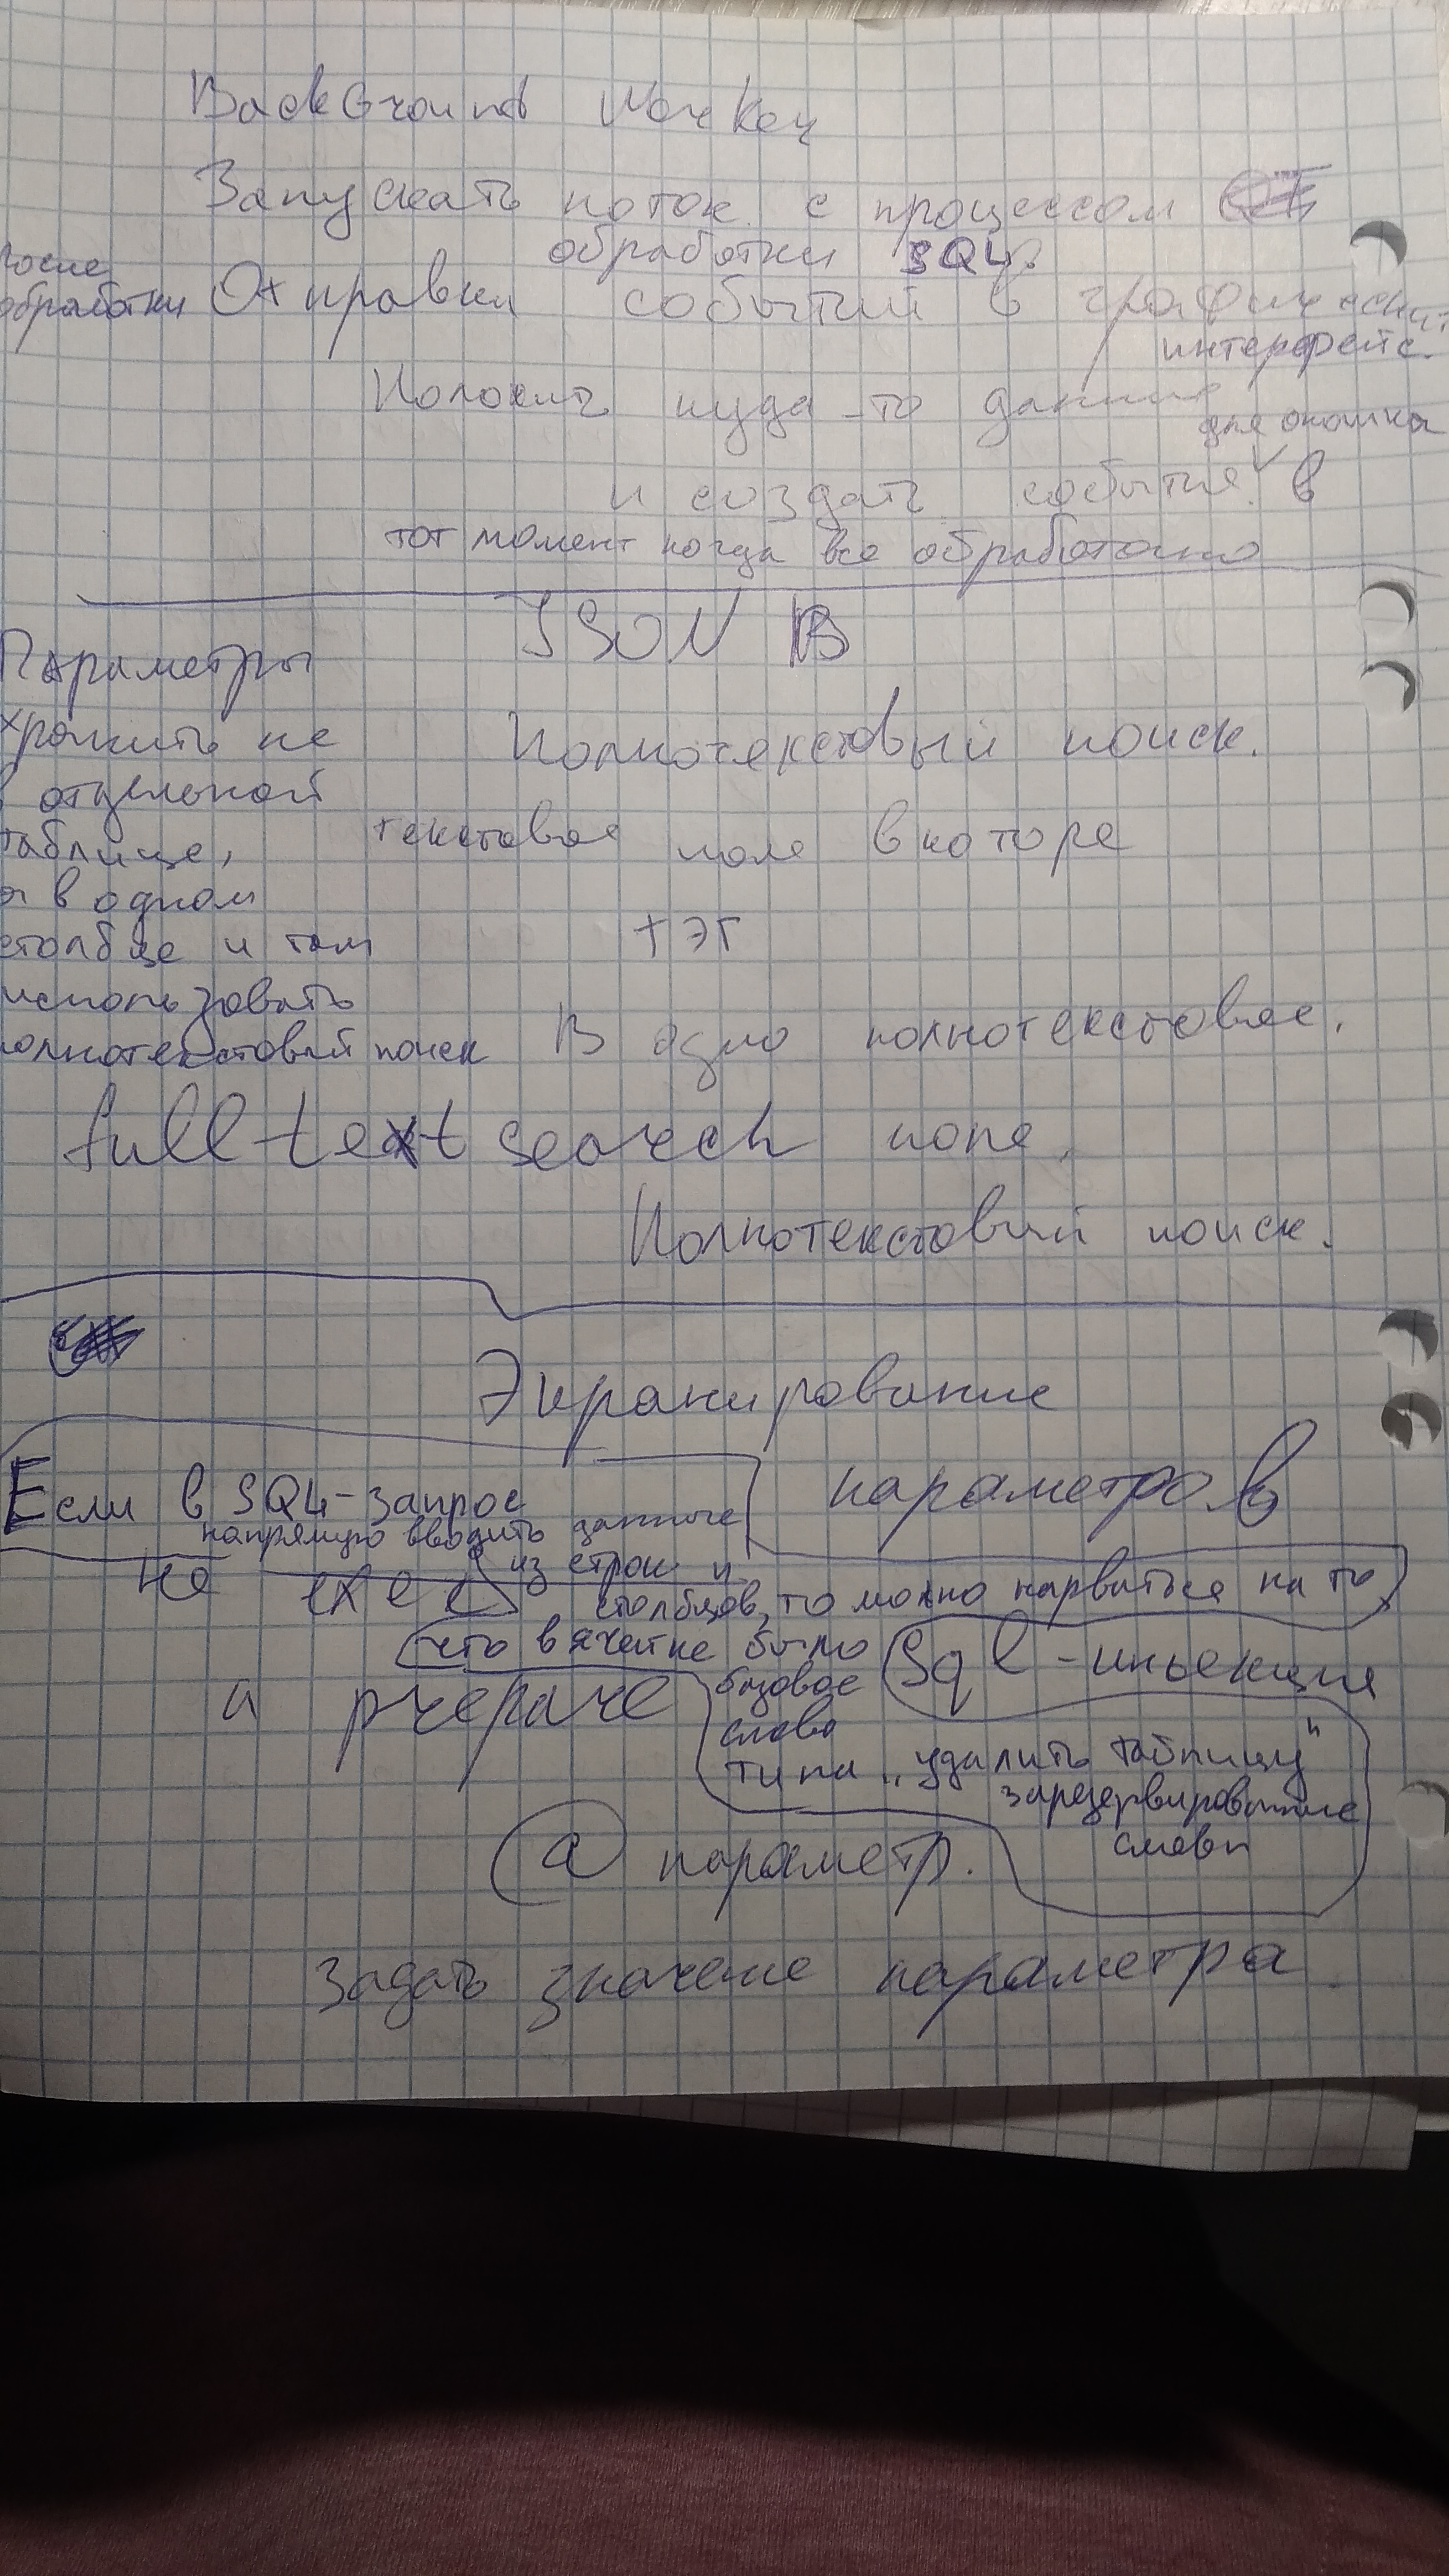 BackGround Worker
Запускать поток с процессом
обработки SQL.
после
обработки Отправки событий в графический
интерфейс.
Положить куда-то данные
для окошка
и создать событие в
тот момент когда все обработано
JSON B
Параметры
хранить не
в отдельной
таблице,
а в одном
столбце и там
использовать
полнотекстовый поиск
Полнотекстовый поиск.
текстовое поле в которе
тэг
В одно полнотекстовое.
full text search поле.
Полнотекстовый поиск.
Экранирование
параметров
Если в SQL-запрос
напрямую вводить данные
из строк и
столбцов, то можно нарваться на то
что в ячейке было
базовое
слово
типа „удалить таблицу"
зарезервированные
слова
не exec
Sql-инъекция
а prepare
@ параметр.
Задать значение параметра